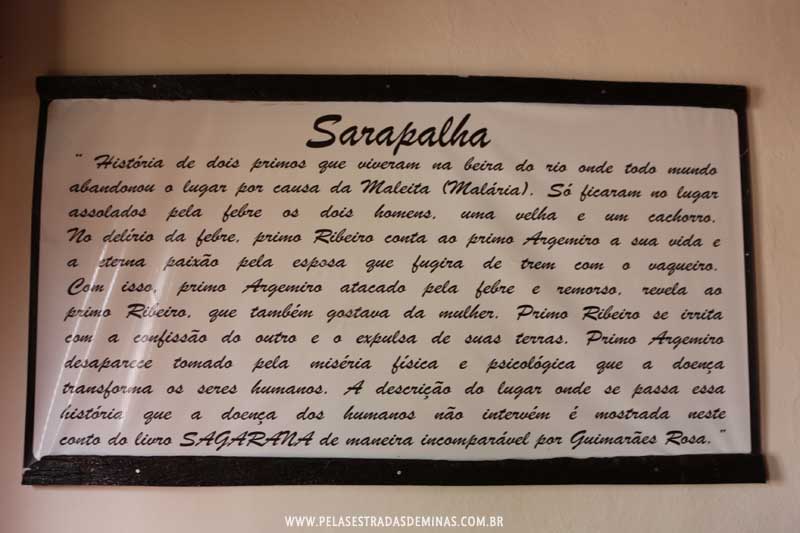 Sarapalha
" História de dois primos que viveram na beira do rio onde todo mundo
abandonou o lugar por causa da Maleita (Malária). Só ficaram no lugar
assolados pela febre os dois homens, uma velha e um cachorro.
No delírio da febre, primo Ribeiro conta ao primo Argemiro a sua vida e
a eterna paixão pela esposa que fugira de trem com o vaqueiro.
Com isso, primo Argemiro atacado pela febre e remorso, revela ao
primo Ribeiro, que também gostava da mulher. Primo Ribeiro se irrita
com a confissão do outro e o expulsa de suas terras. Primo Argemiro
desaparece tomado pela miséria física e psicológica que a doença
transforma os seres humanos. A descrição do lugar onde se passa essa
história que a doença dos humanos não intervém é mostrada neste
conto do livro SAGARANA de maneira incomparável por Guimarães Rosa."
WWW.PELASESTRADASDEMINAS.COM.BR